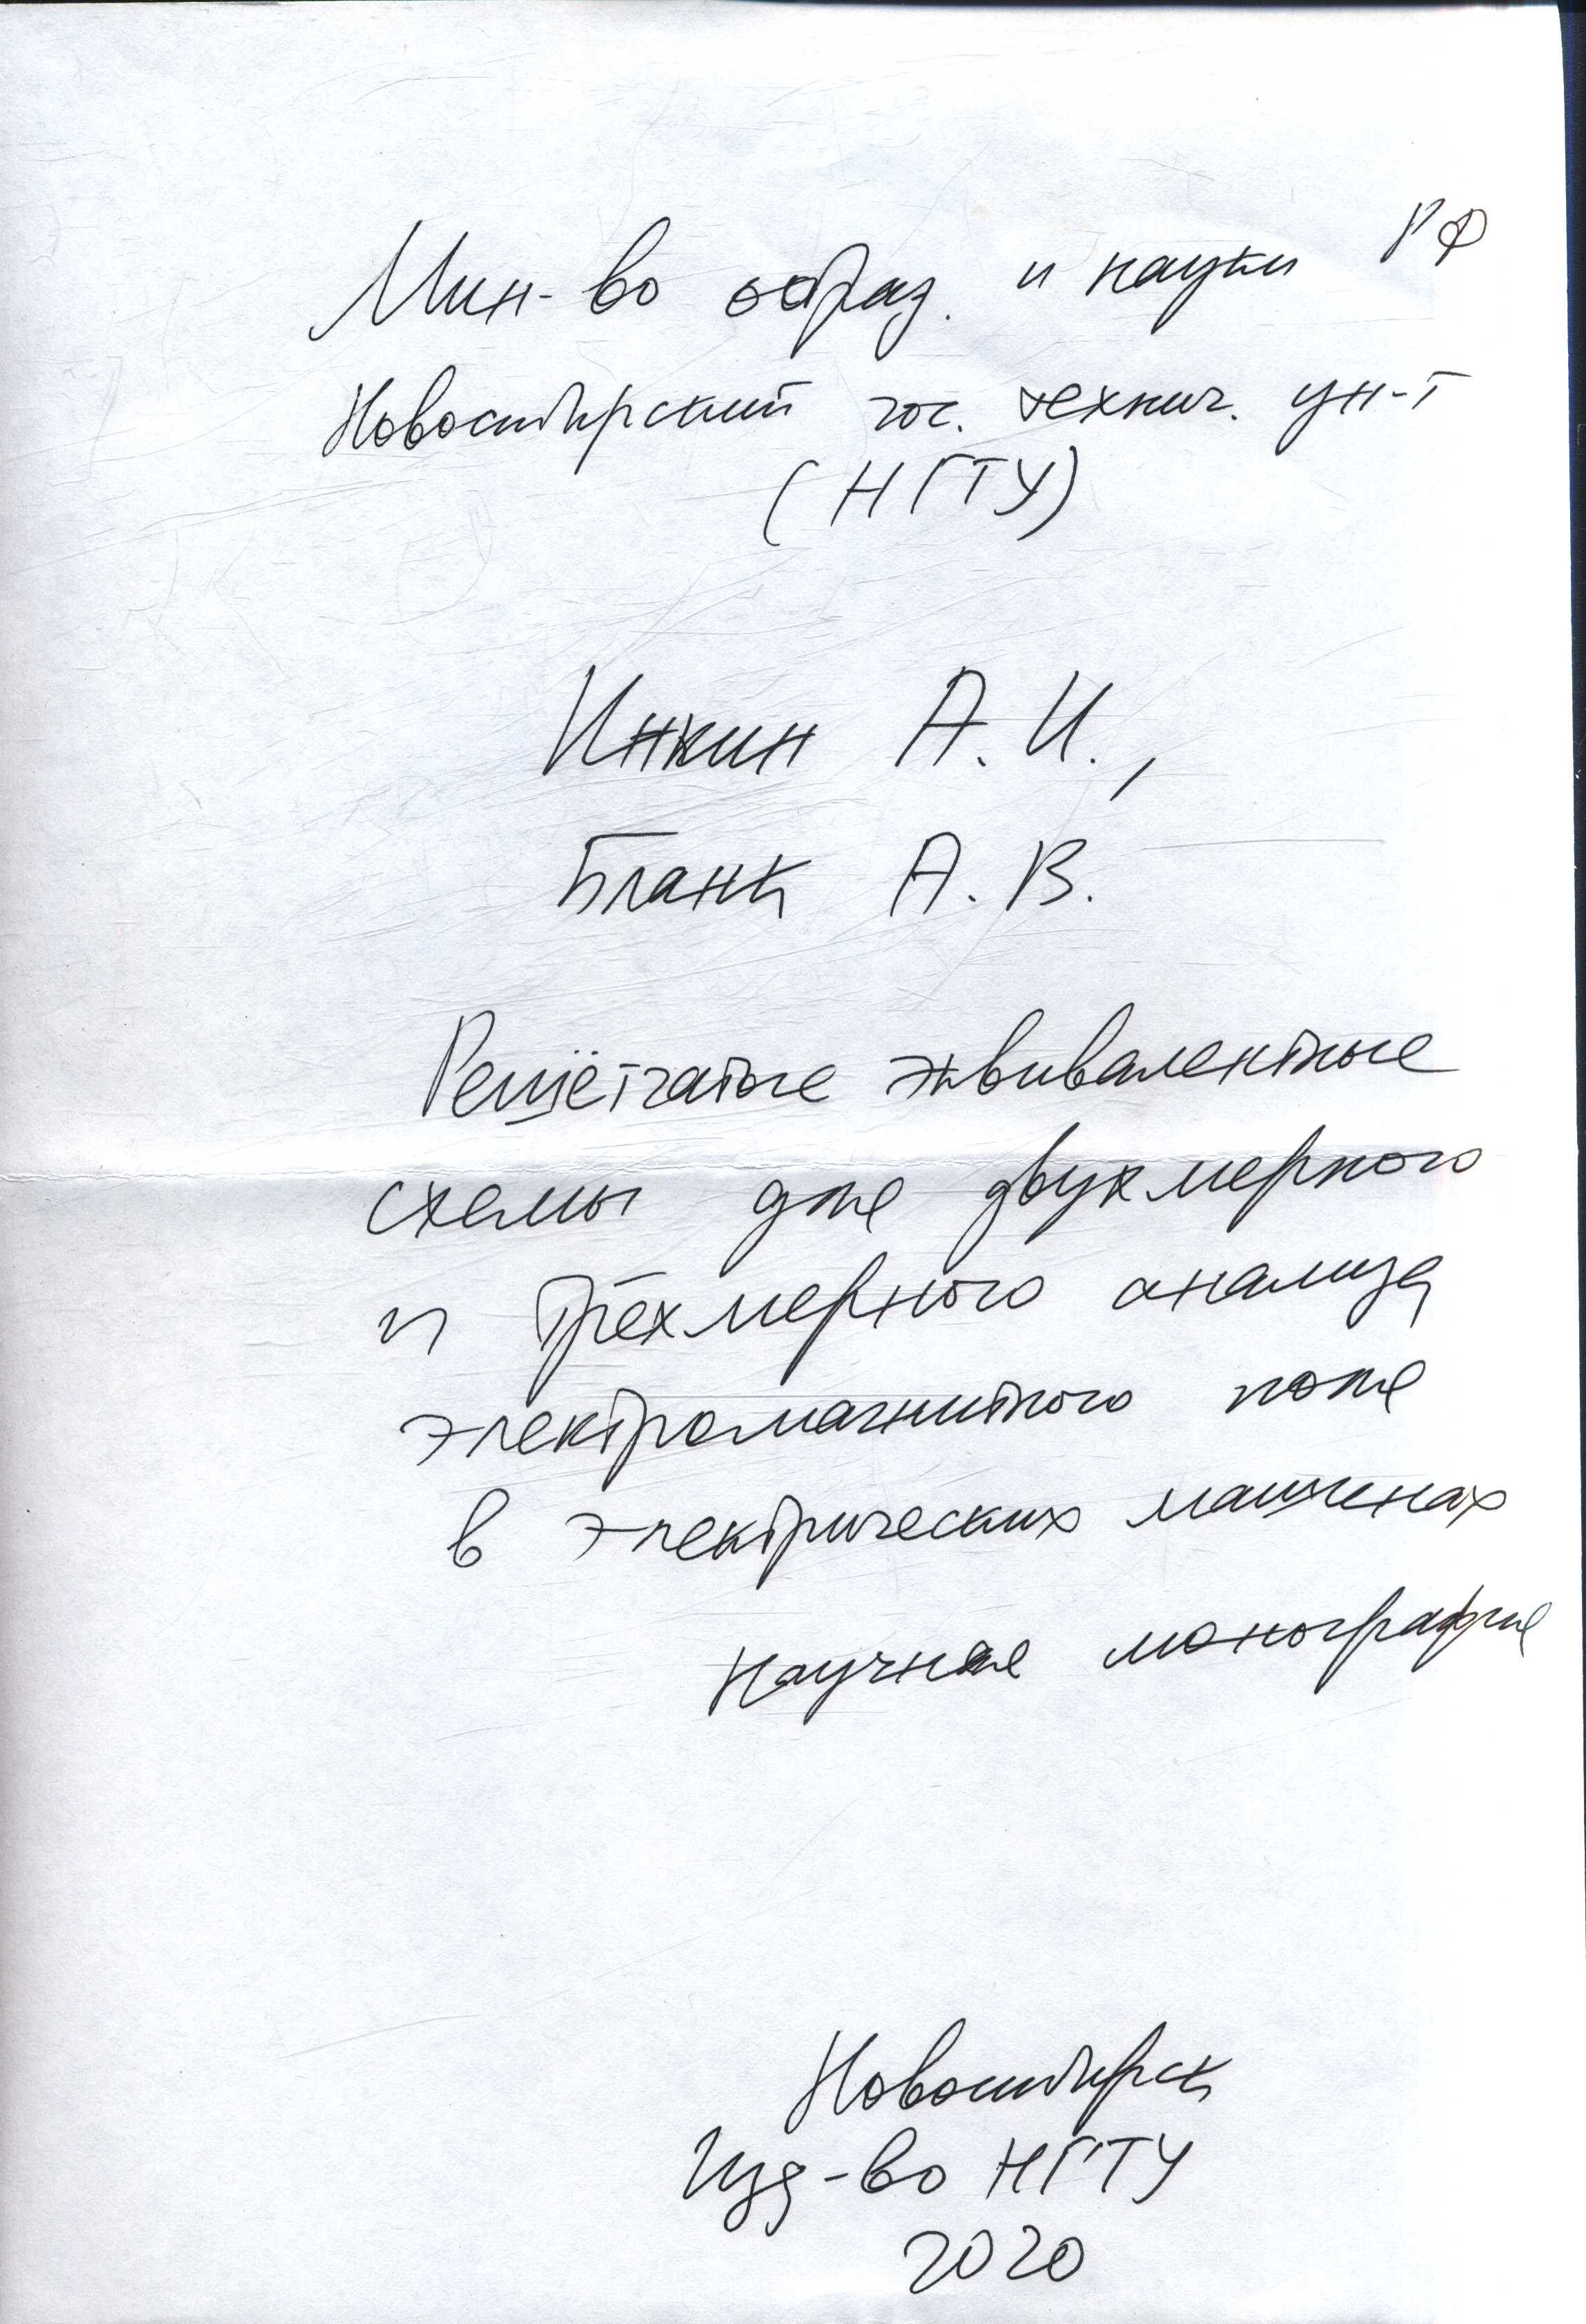 Мин-во образ. и науки РФ
Новосибирский гос. технич. ун-т
(НГТУ)
Инкин А. И.,
Бланк А. В.
Решётчатые эквивалентные
схемы для двухмерного
и трёхмерного анализа
электромагнитного поля
в электрических машинах
Научная монография
Новосибирск
Изд-во НГТУ
2020